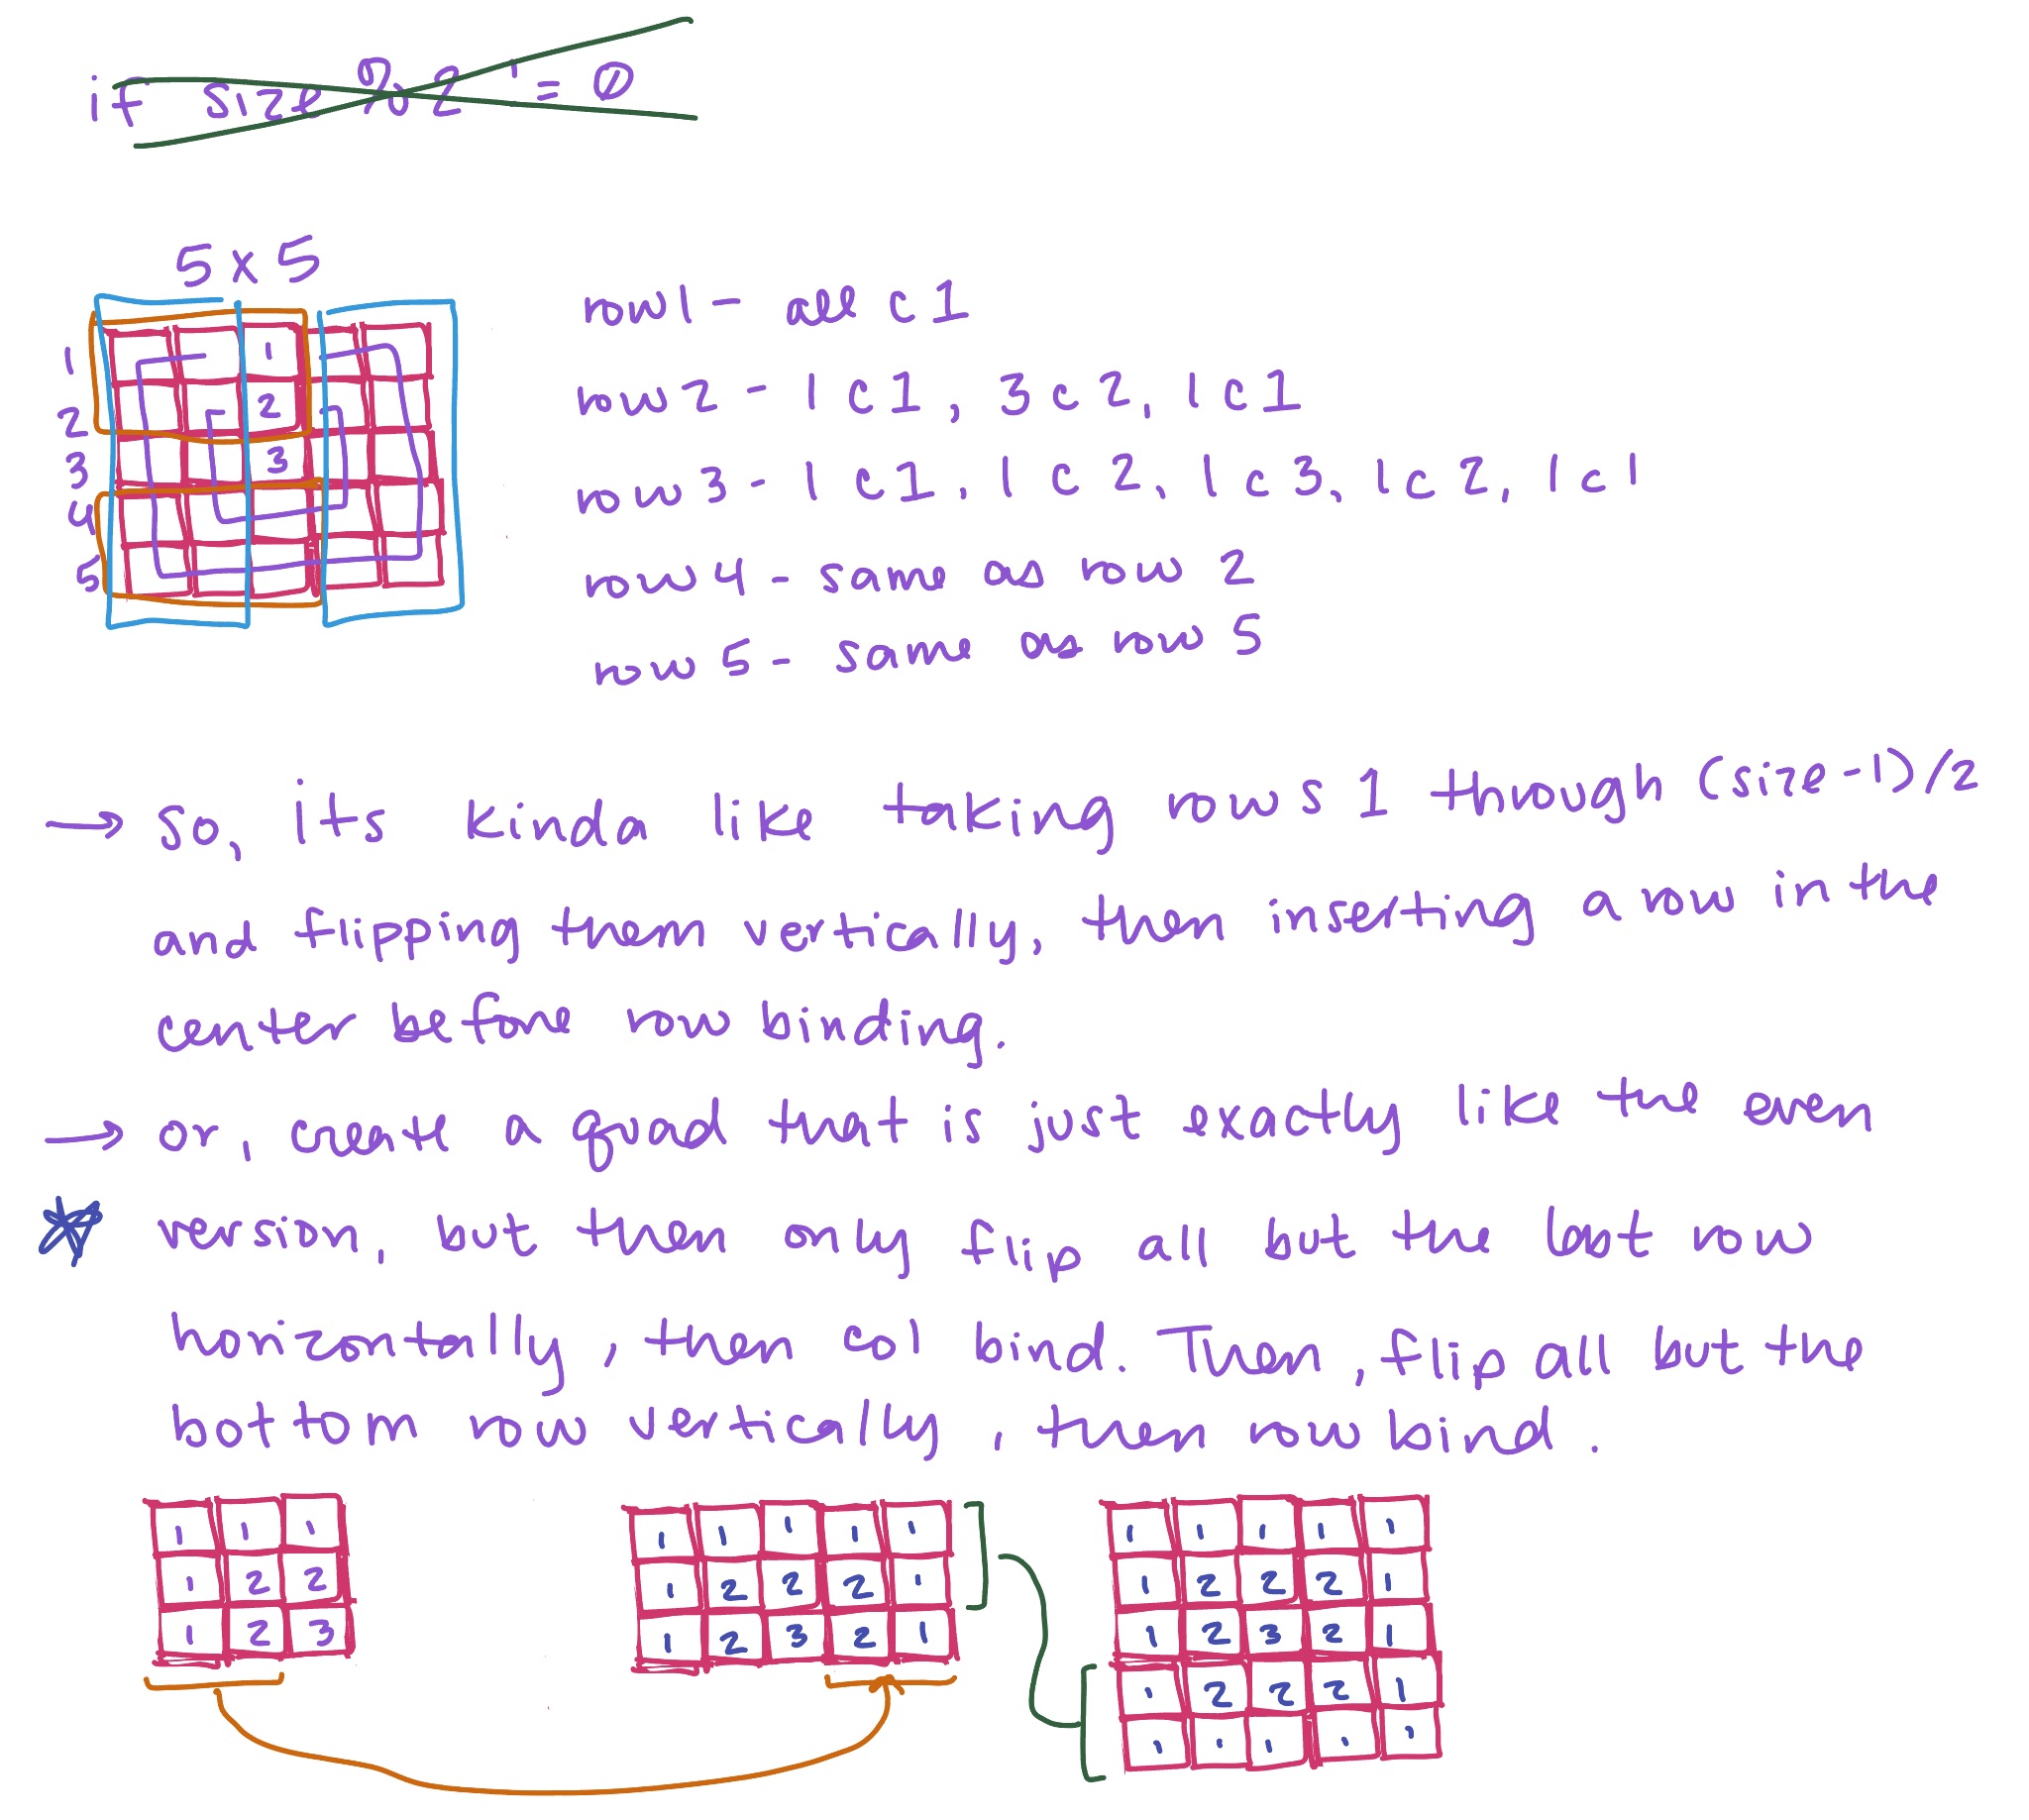 if size % 2 != 0
5 x 5
1
2
3
4
5
1
2
3
row 1 - all c1
row 2 - 1 c1, 3 c2, 1 c1
row 3 - 1 c1, 1 c2, 1 c3, 1 c2, 1 c1
row 4 - same as row 2
row 5 - same as row 5
→ so, its kinda like taking rows 1 through (size-1)/2
and flipping them vertically, then inserting a row in the
center before row binding.
→ or, create a quad that is just exactly like the even
version, but then only flip all but the last row
horizontally, then col bind. Then, flip all but the
bottom row vertically, then row bind.
1 1 1
1 2 2
1 2 3
1 1 1 1 1
1 2 2 2 1
1 2 3 2 1
1 1 1 1 1
1 2 2 2 1
1 2 3 2 1
1 2 2 2 1
1 1 1 1 1